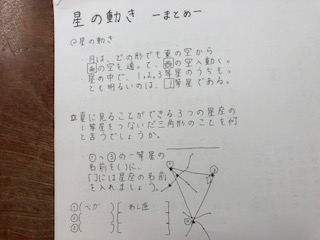 星の動き ーまとめー
◎星の動き
・月は、どの形でも東の空から
南の空を通って、西の空へ動く。
星の中で、1,2,3等星のうちもっ
とも明るいのは、1等星である。
☆夏に見ることができる3つの星座の
1等星をつないだ三角形のことを何
と言うでしょうか。
①〜③の一等星の
名前を( )に、
[ ]には星座の名前
を入れましょう。
① ② ③
①(ベガ) [わし座]
②( ) [ ]
③( ) [ ]